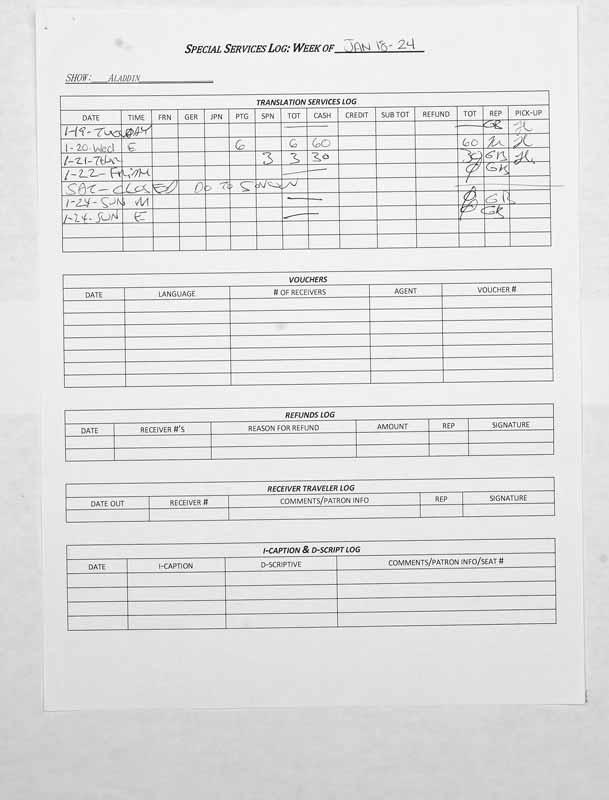 SPECIAL SERVICES LOG: WEEK OF JAN 18-24
SHOW: ALADDIN
TRANSLATION SERVICES LOG
DATE TIME FRN GER JPN PTG SPN TOT CASH CREDIT SUB TOT REFUND TOT REP PICK-UP
1-19-Tuesday — — GB
1-20-Wed E 6 6 60 60
1-21-Thur 3 3 30 30 GB
1-22-Fri — ∅ GB
SAT-CLOSED DO TO SNOW
1-24-SUN M — ∅ GB
1-24-SUN E — ∅ GB
VOUCHERS
DATE LANGUAGE # OF RECEIVERS AGENT VOUCHER #
REFUNDS LOG
DATE RECEIVER #'S REASON FOR REFUND AMOUNT REP SIGNATURE
RECEIVER TRAVELER LOG
DATE OUT RECEIVER # COMMENTS/PATRON INFO REP SIGNATURE
I-CAPTION & D-SCRIPT LOG
DATE I-CAPTION D-SCRIPTIVE COMMENTS/PATRON INFO/SEAT #